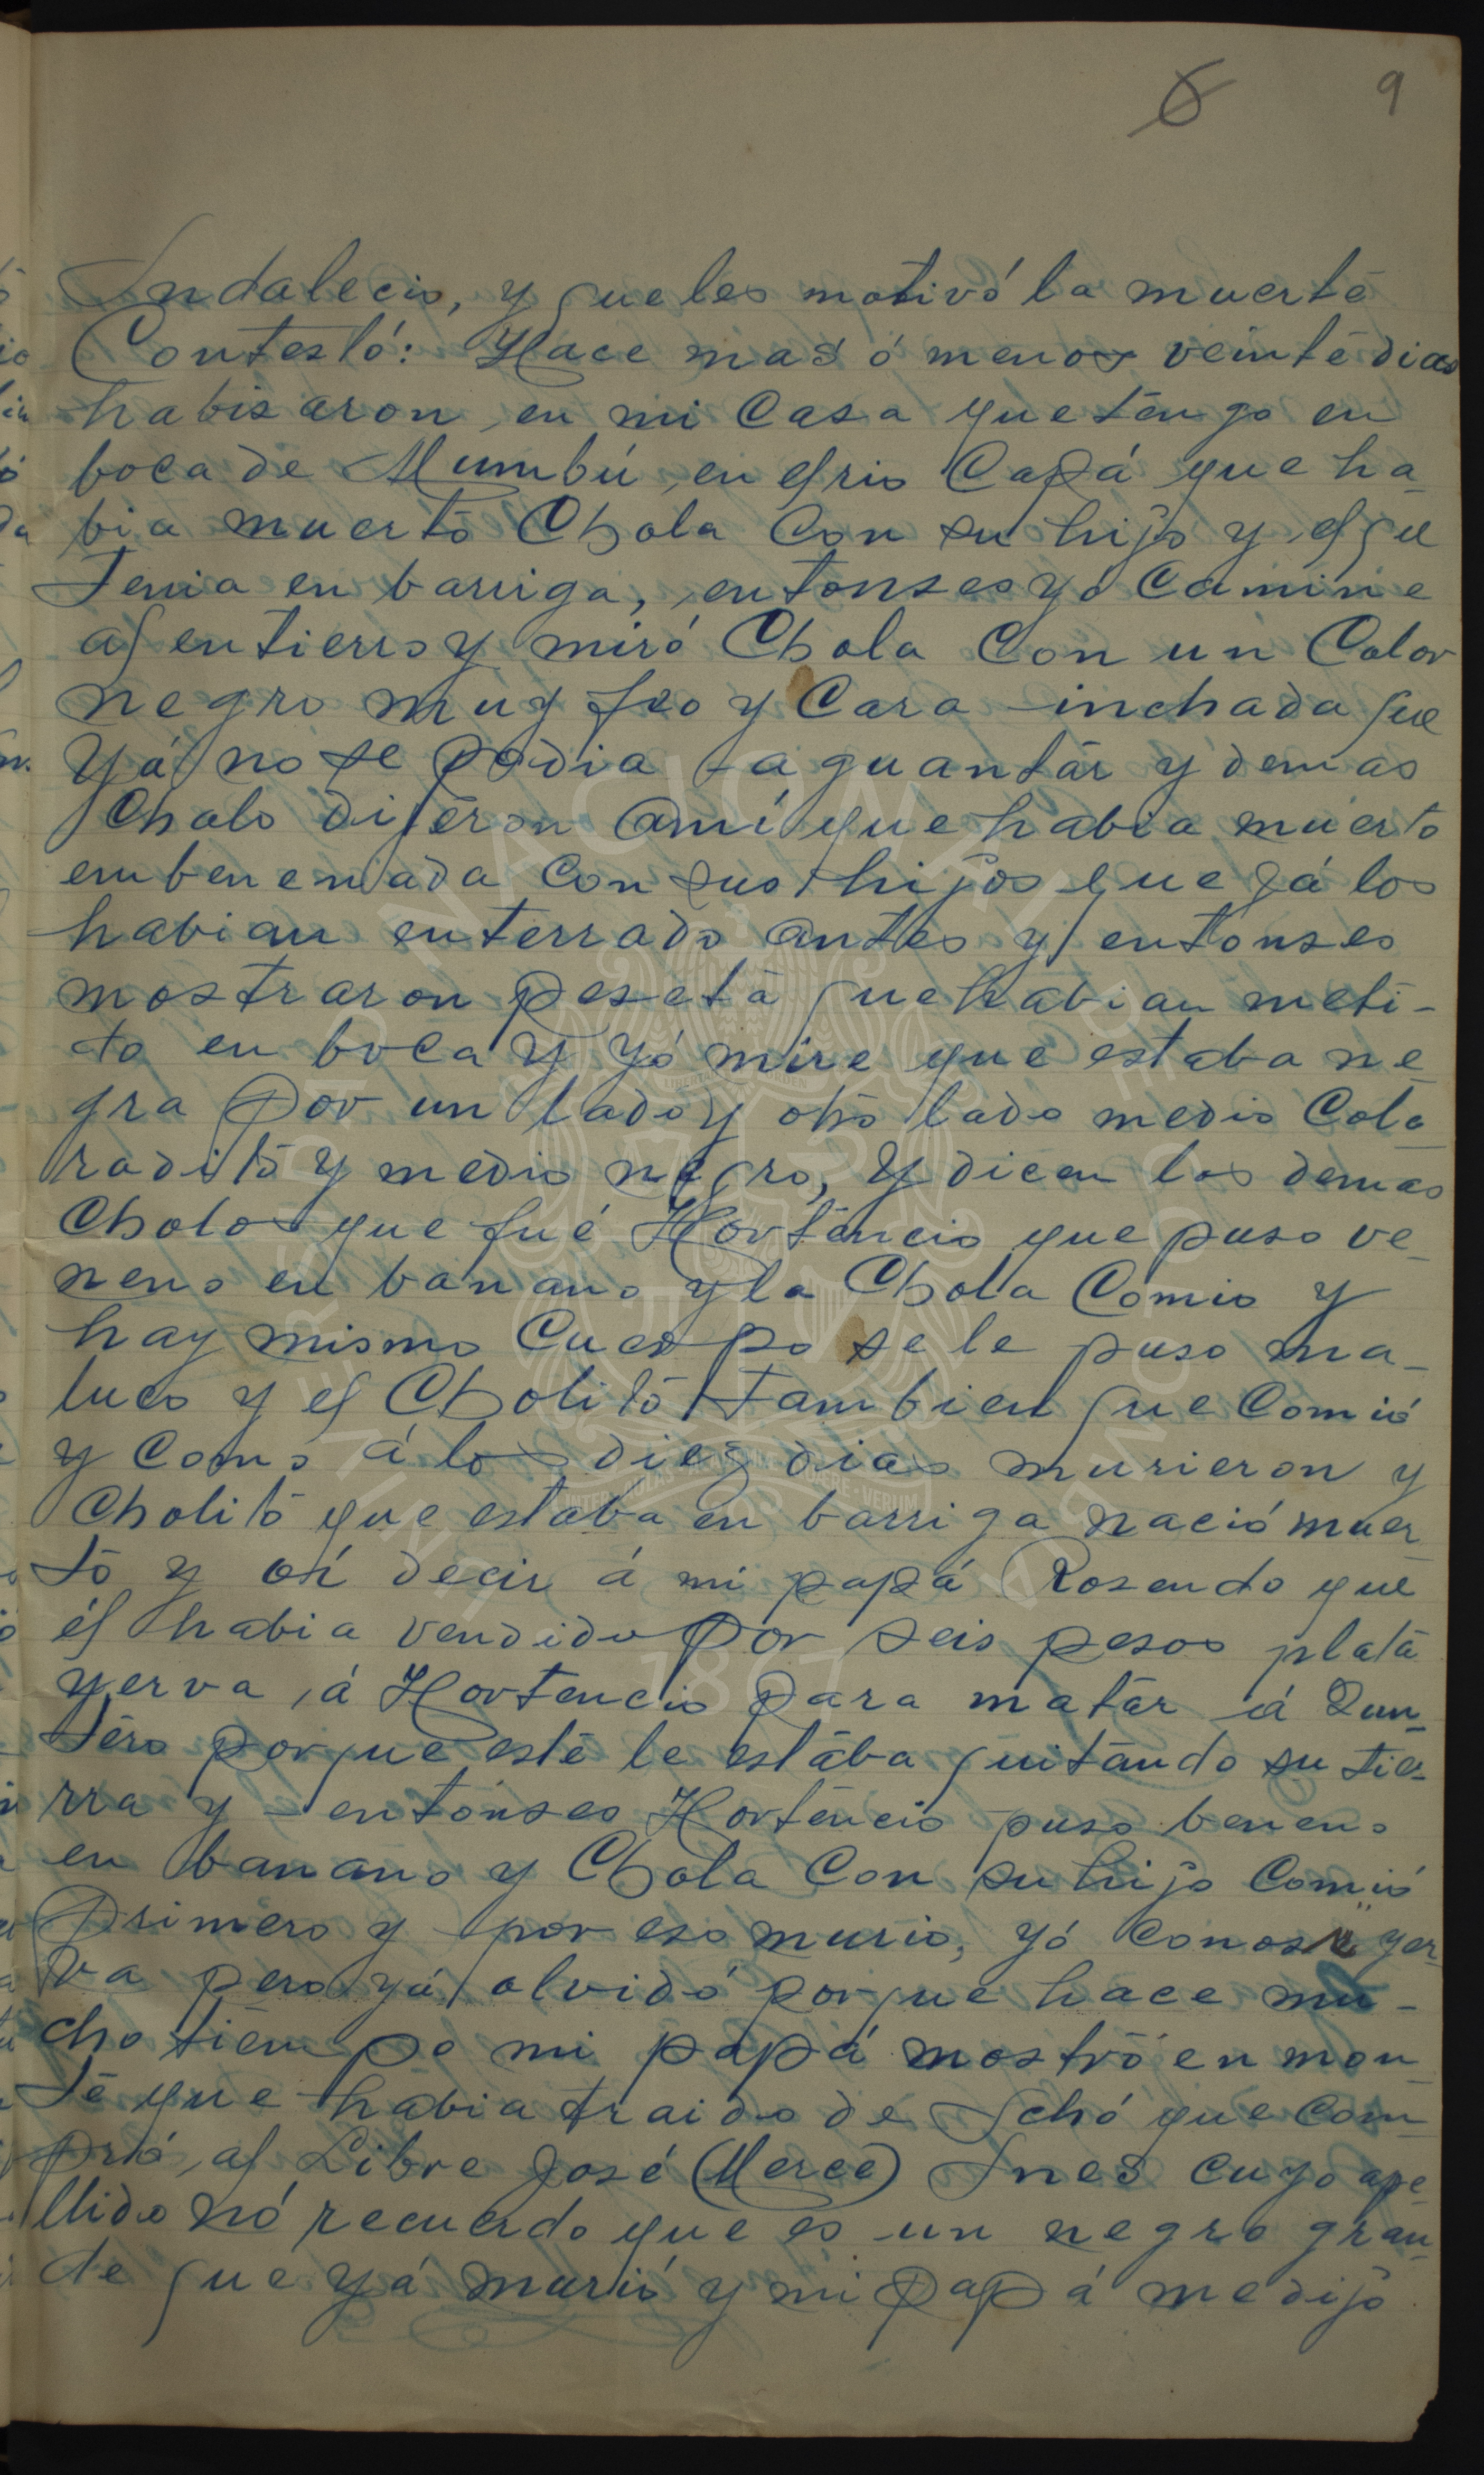 6 9
Indalecio, y que les motivó la muerte
Contestó: Hace mas ó menos veinte dias
habisaron en mi casa que tengo en
boca de Mumbú, en el rio Capá que ha-
bia muerto Chola con su hijo y el que
tenia en barriga, entonses yo camine
al entierro y miró Chola con un Color
negro muy feo y cara inchada que
yá no se podia aguantár y demas
Cholo dijeron a mí que habia muerto
embenenada con sus hijos que yá los
habian enterrado antes y entonses
mostraron peseta que habian meti-
do en boca y yó mire que estaba ne-
gra por un lado y otro lado medio Colo-
radito y medio negro, y dicen los demas
Cholos que fué Hortencio que puso ve-
neno en banano y la Chola Comio y
hay mismo cuerpo se le puso ma-
luco y el Cholito tambien que Comió
y como á los diez dias murieron y
Cholito que estaba en barriga nació muer
to y oí decir á mi papá Rosendo que
él habia vendido por seis pesos plata
yerva á Hortencio para matár á Quin-
tero porque este le estába quitando su tie-
rra y entónses Hortencio puso beneno
en banano y Chola con su hijo Comió
primero y por eso murio, yó conosi yer-
va pero yá olvidó porque hace mu-
cho tiempo mi papá mostró en mon-
te que habia traido de Ichó que com-
pró al Libre José (Merce) Ines cuyo ape-
llido nó recuerdo que es un negro gran-
de que yá murió y mi papá me dijo
UNIVERSIDAD NACIONAL DE COLOMBIA
LIBERTAD Y ORDEN
INTER AULAS ACADEMIAE QUAERE VERUM
1867